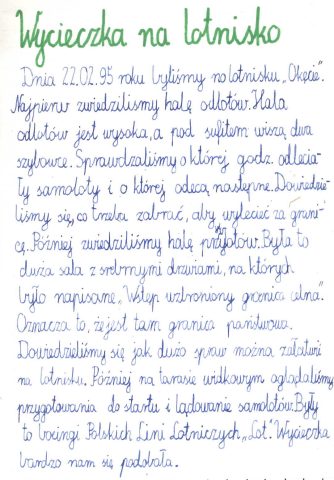 Wycieczka na lotnisko
Dnia 22.02.95 roku byliśmy na lotnisku „Okęcie".
Najpierw zwiedziliśmy halę odlotów. Hala
odlotów jest wysoka, a pod sufitem wiszą dwa
szybowce. Sprawdzaliśmy o której godz. odlecia-
ły samoloty i o której odecą następne. Dowiedzie-
liśmy się, co trzeba zabrać, aby wylecieć za grani-
cę. Później zwiedziliśmy halę przylotów. Była to
duża sala z srebrnymi drzwiami, na których
było napisane „Wstęp wzbroniony granica celna".
Oznacza to, że jest tam granica państwowa.
Dowiedzieliśmy się jak dużo spraw można załatwić
na lotnisku. Później na tarasie widkowym oglądaliśmy
przygotowania do startu i lądowanie samolotów. Były
to boeingi Polskich Lini Lotniczych „Lot". Wycieczka
bardzo nam się podobała.